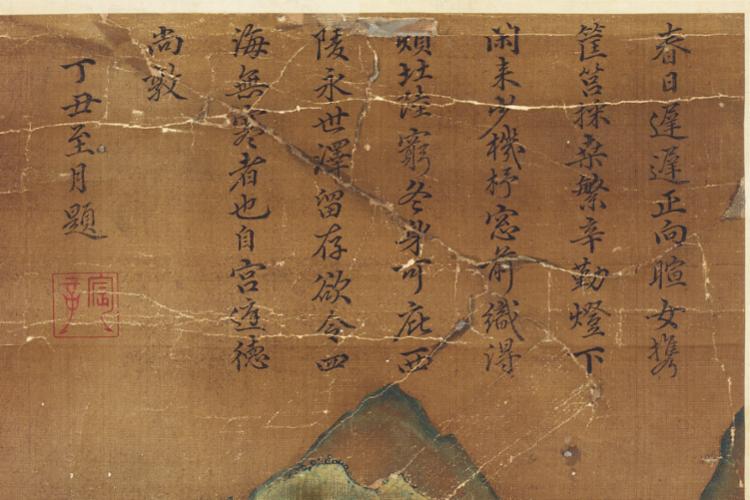 春日遲遲正向暄女攜
筐筥採桑繁辛勤燈下
閑来機杼窓前織得
窮冬身可庇西
陵永世澤留存欲令四
海無寒者也自宮德
尚敦
丁丑至月題
宸章